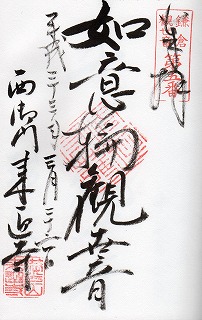 鎌倉
第五番
奉拝
如意輪觀世音
平成二十三年三月二十
日
西御門 来迎寺